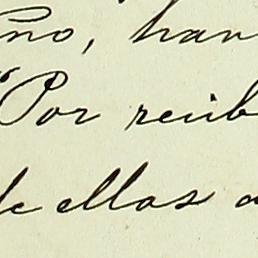 no, han
"Por recib
de ellas a